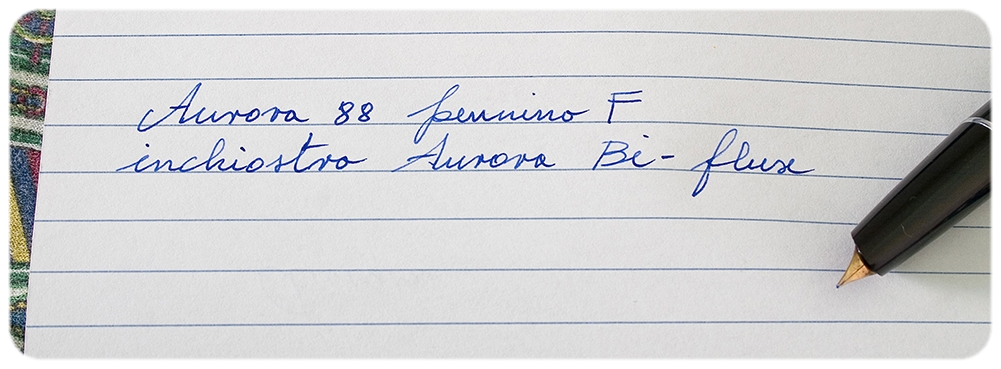 Aurora 88 pennino F
inchiostro Aurora Bi-flux